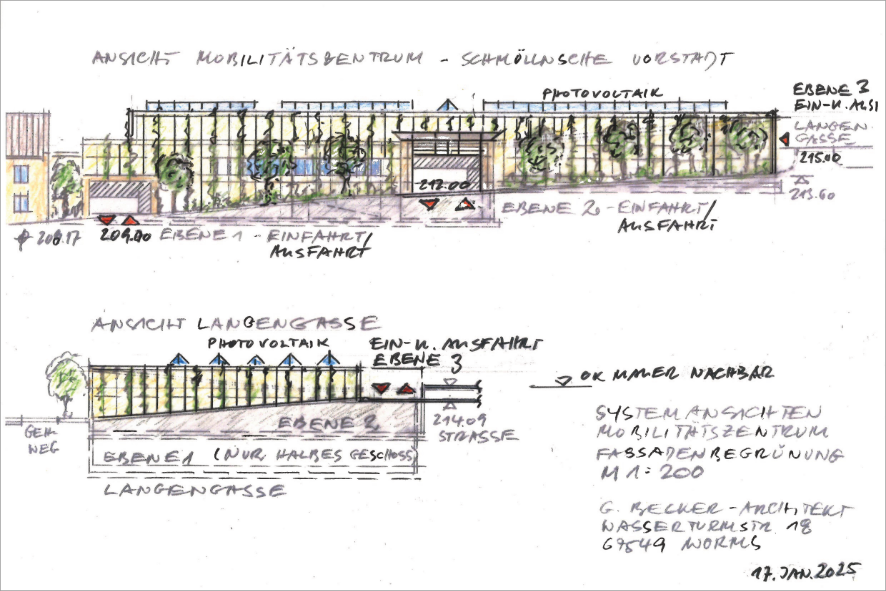 ANSICHT MOBILITÄTSZENTRUM - SCHMÖLLNSCHE VORSTADT
PHOTOVOLTAIK
EBENE 3
EIN-U. AUSF
LANGEN
GASSE
215.00
213.60
212.00
208.17
209.00 EBENE 1 - EINFAHRT/
AUSFAHRT
EBENE 2 - EINFAHRT/
AUSFAHRT
ANSICHT LANGENGASSE
PHOTOVOLTAIK
EIN-U. AUSFAHRT
EBENE 3
OK MAUER NACHBAR
GEH-
WEG
EBENE 2
214.09
STRASSE
EBENE 1 (NUR HALBES GESCHOSS)
LANGENGASSE
SYSTEMANSICHTEN
MOBILITÄTSZENTRUM
FASSADENBEGRÜNUNG
M 1:200
G. BECKER - ARCHITEKT
WASSERTURMSTR. 18
67549 WORMS
17. JAN. 2025